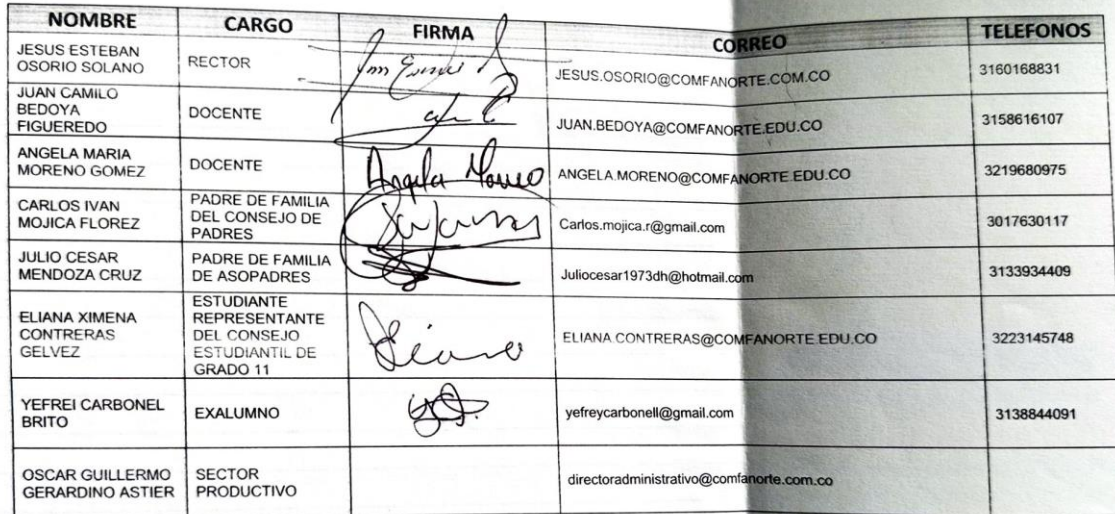 NOMBRE CARGO FIRMA CORREO TELEFONOS
JESUS ESTEBAN
OSORIO SOLANO
RECTOR
JESUS.OSORIO@COMFANORTE.COM.CO
3160168831
JUAN CAMILO
BEDOYA
FIGUEREDO
DOCENTE
JUAN.BEDOYA@COMFANORTE.EDU.CO
3158616107
ANGELA MARIA
MORENO GOMEZ
DOCENTE
Angela Moreno
ANGELA.MORENO@COMFANORTE.EDU.CO
3219680975
CARLOS IVAN
MOJICA FLOREZ
PADRE DE FAMILIA
DEL CONSEJO DE
PADRES
Carlos.mojica.r@gmail.com
3017630117
JULIO CESAR
MENDOZA CRUZ
PADRE DE FAMILIA
DE ASOPADRES
Juliocesar1973dh@hotmail.com
3133934409
ELIANA XIMENA
CONTRERAS
GELVEZ
ESTUDIANTE
REPRESENTANTE
DEL CONSEJO
ESTUDIANTIL DE
GRADO 11
ELIANA.CONTRERAS@COMFANORTE.EDU.CO
3223145748
YEFREI CARBONEL
BRITO
EXALUMNO
yefreycarbonell@gmail.com
3138844091
OSCAR GUILLERMO
GERARDINO ASTIER
SECTOR
PRODUCTIVO
directoradministrativo@comfanorte.com.co